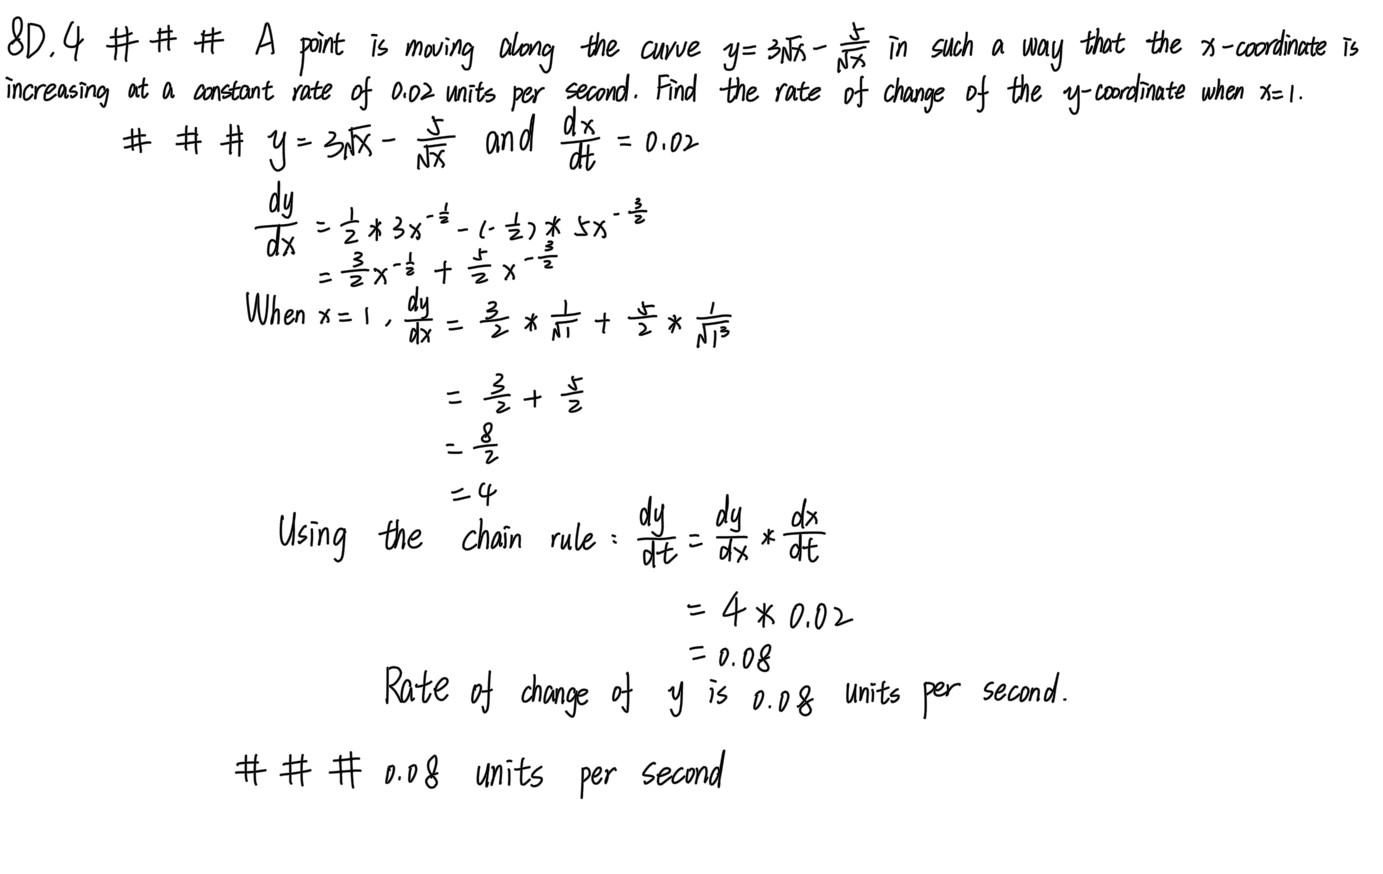 8D.4 # # # A point is moving along the curve y = 3√x - 5/√x in such a way that the x-coordinate is
increasing at a constant rate of 0.02 units per second. Find the rate of change of the y-coordinate when x=1.
# # # y = 3√x - 5/√x and dx/dt = 0.02
dy/dx = 1/2 * 3x^(-1/2) - (-1/2) * 5x^(-3/2)
= 3/2 x^(-1/2) + 5/2 x^(-3/2)
When x = 1, dy/dx = 3/2 * 1/√1 + 5/2 * 1/√1³
= 3/2 + 5/2
= 8/2
= 4
Using the chain rule : dy/dt = dy/dx * dx/dt
= 4 * 0.02
= 0.08
Rate of change of y is 0.08 units per second.
# # # 0.08 units per second